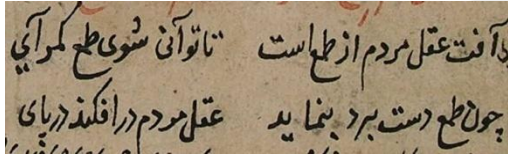 آفت عقل مردم از طمع است تا توانی شوی طمع کم رآی
چون طمع دست برد بنماید عقل مردم درافکند در پای